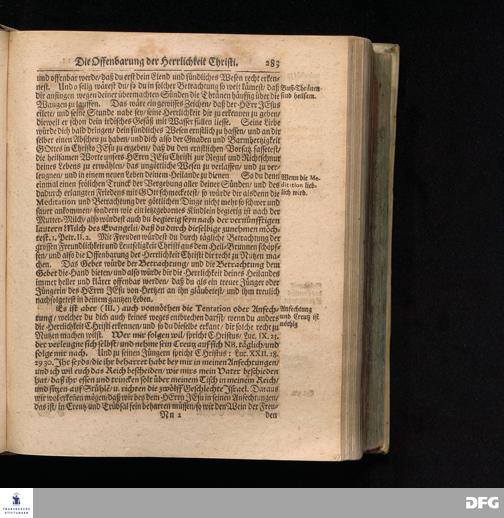 Die Offenbarung der Herrlichkeit Christi. 283
und offenbar werde/ daß du erst dein Elend und sündliches Wesen recht erken-
nest. Und o selig wärest du/ so du in solcher Betrachtung so weit kämest/ daß
dir anfingen wegen deiner übermachten Sünden die Thränen häuffig über die
Wangen zu lauffen. Das wäre ein gewisses Zeichen/ daß der HErr JEsus
eilete/ und seine Stunde nahe sey/ seine Herrlichkeit dir zu erkennen zu geben/
dieweil er schon dein irdisches Gefäß mit Wasser füllen liesse. Seine Liebe
würde dich bald dringen/ dein sündliches Wesen ernstlich zu hassen/ und an dir
selber einen Abscheu zu haben/ und dich also der Gnaden und Barmhertzigkeit
GOttes in Christo JEsu zu ergeben/ daß du den ernstlichen Vorsatz fassetest/
die heilsamen Worte unsers HErrn JEsu Christi zur Regul und Richtschnur
deines Lebens zu erwählen/ das ungöttliche Wesen zu verlassen/ und zu ver-
leugnen/ und in einem neuen Leben deinem Heilande zu dienen. So du denn
einmal einen frölichen Trunck der Vergebung aller deiner Sünden/ und des
dadurch erlangten Friedens mit GOtt schmecketest/ so würde dir alsdenn die
Meditation und Betrachtung der göttlichen Dinge nicht mehr so schwer und
sauer ankommen/ sondern wie ein jetztgebornes Kindlein begierig ist nach der
Mutter-Milch/ also würdest auch du begierig seyn nach der vernünfftigen
lautern Milch des Evangelii/ daß du durch dieselbige zunehmen möch-
test. 1. Petr. II. 2. Mit Freuden würdest du durch tägliche Betrachtung der
grossen Freundlichkeit und Leutseligkeit Christi aus dem Heil-Brunnen schöpf-
fen/ und also die Offenbarung der Herrlichkeit Christi dir recht zu Nutzen ma-
chen. Das Gebet würde der Betrachtung/ und die Betrachtung dem
Gebet die Hand bieten/ und also würde dir die Herrlichkeit deines Heilandes
immer heller und klärer offenbar werden/ daß du als ein treuer Jünger oder
Jüngerin des HErrn JEsu von Hertzen an ihn gläubetest/ und ihm treulich
nachfolgetest in deinem gantzen Leben.
Es ist aber (III.) auch vonnöthen die Tentation oder Anfech-
tung/ welcher du dich auch keines weges entbrechen darfst/ wenn du anders
die Herrlichkeit Christi erkennen/ und so du dieselbe erkant/ dir solche recht zu
Nutzen machen wilst. Wer mir folgen wil/ spricht Christus/ Luc. IX. 23.
der verleugne sich selbst/ und nehme sein Creutz auf sich NB. täglich/ und
folge mir nach. Und zu seinen Jüngern spricht Christus: Luc. XXII. 28.
29. 30. Ihr seyds die ihr beharret habt bey mir in meinen Anfechtungen/
und ich wil euch das Reich bescheiden/ wie mirs mein Vater beschieden
hat/ daß ihr essen und trincken solt über meinem Tisch in meinem Reich/
und sitzen auf Stühle/ u. richten die zwölff Geschlechte Israel. Daraus
wir wol erkennen mögen/ daß wir bey dem HErrn JEsu in seinen Anfechtungen/
das ist/ in Creutz und Trübsal fein beharren müssen/ so wir den Wein der Freu-
Nn 2 den
Buß-Thränen
sind heilsam.
Wenn die Me-
ditation lieb-
lich wird.
Anfechtung
und Creutz ist
nöthig
FRANCKESCHE
STIFTUNGEN
DFG